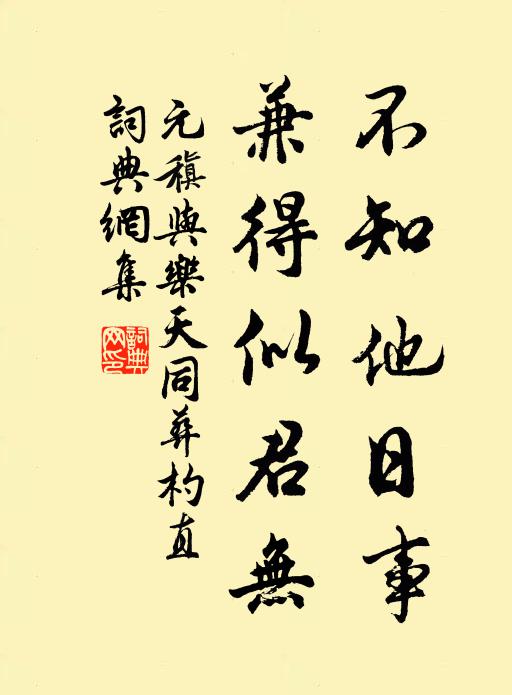 不知他日事
兼得似君無
元稹與樂天同葬杓直
詞典網集
詞典网印